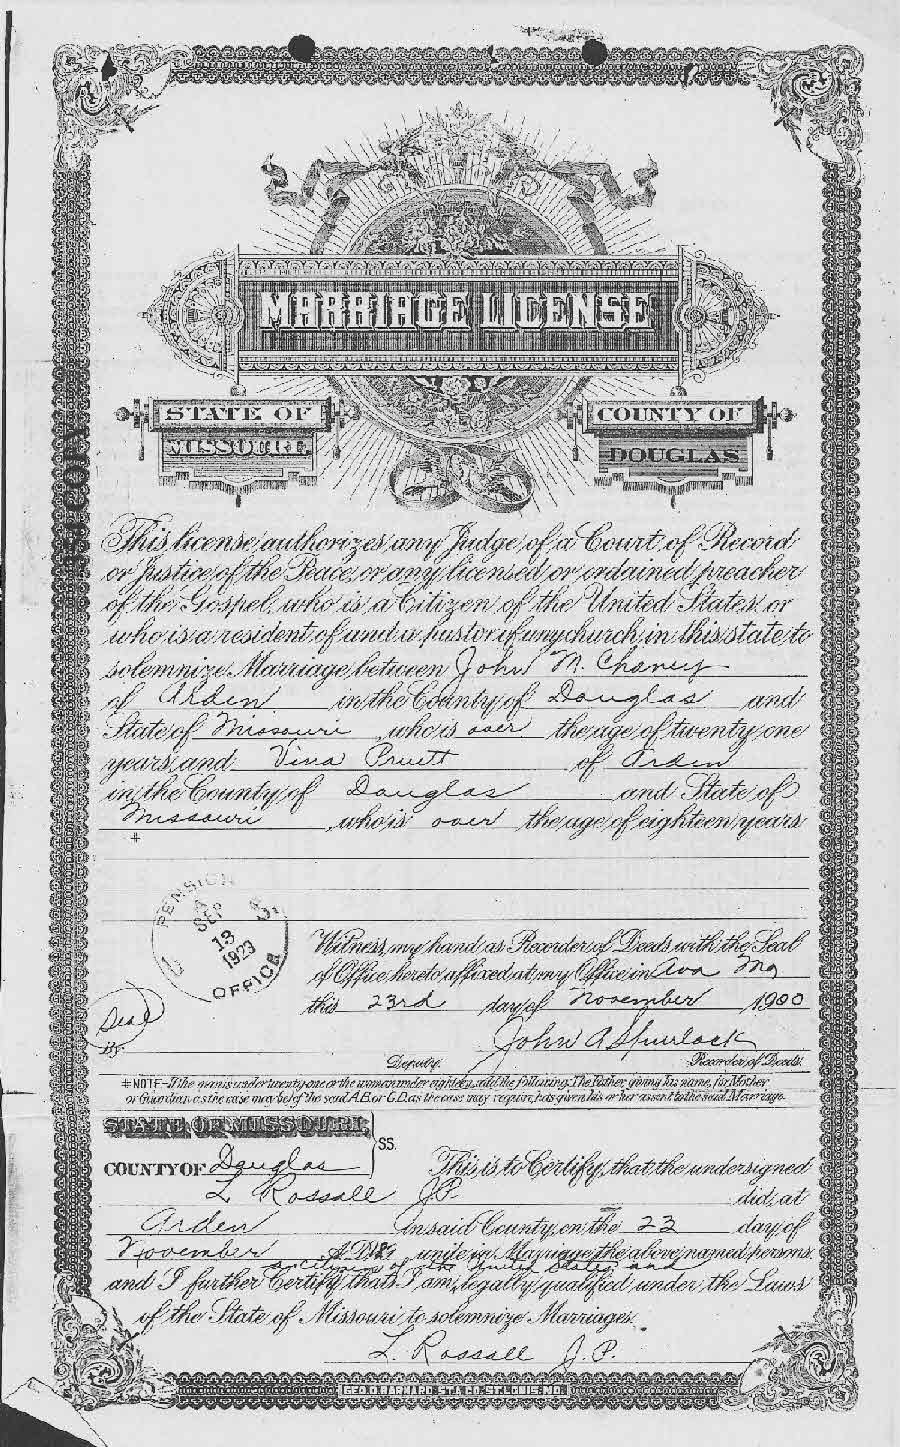 MARRIAGE LICENSE
STATE OF
MISSOURI.
COUNTY OF
DOUGLAS
This license authorizes any Judge of a Court of Record
or Justice of the Peace, or any licensed or ordained preacher
of the Gospel, who is a Citizen of the United States, or
who is a resident of and a pastor of any church in this state, to
solemnize Marriage between John M. Chaney
of Arden in the County of Douglas and
State of Missouri who is over the age of twenty one
years, and Vina Pruett of Arden
in the County of Douglas and State of
Missouri who is over the age of eighteen years
#
U S. PENSION OFFICE
A
SEP
13
1923
Witness, my hand as Recorder of Deeds, with the Seal
of Office hereto affixed, at my Office in Ava Mo
this 23rd day of November 1900
Seal
John A Spurlock
By. Deputy. Recorder of Deeds.
# NOTE—If the man is under twenty one or the woman under eighteen, add the following: The Father, giving his name, (or Mother
or Guardian as the case may be) of the said A.B. or C.D. as the case may require, has given his or her assent to the said Marriage.
STATE OF MISSOURI, SS.
COUNTY OF Douglas This is to Certify, that the undersigned
L Rossall J.P. did, at
Arden in said County, on the 23 day of
November A.D. unite in Marriage the above named persons
a citizen of the United States and
and I further Certify that I am, legally qualified under the Laws
of the State of Missouri to solemnize Marriages.
L. Rossall J. P.
GEO. D. BARNARD ST. & CO. ST. LOUIS, MO.